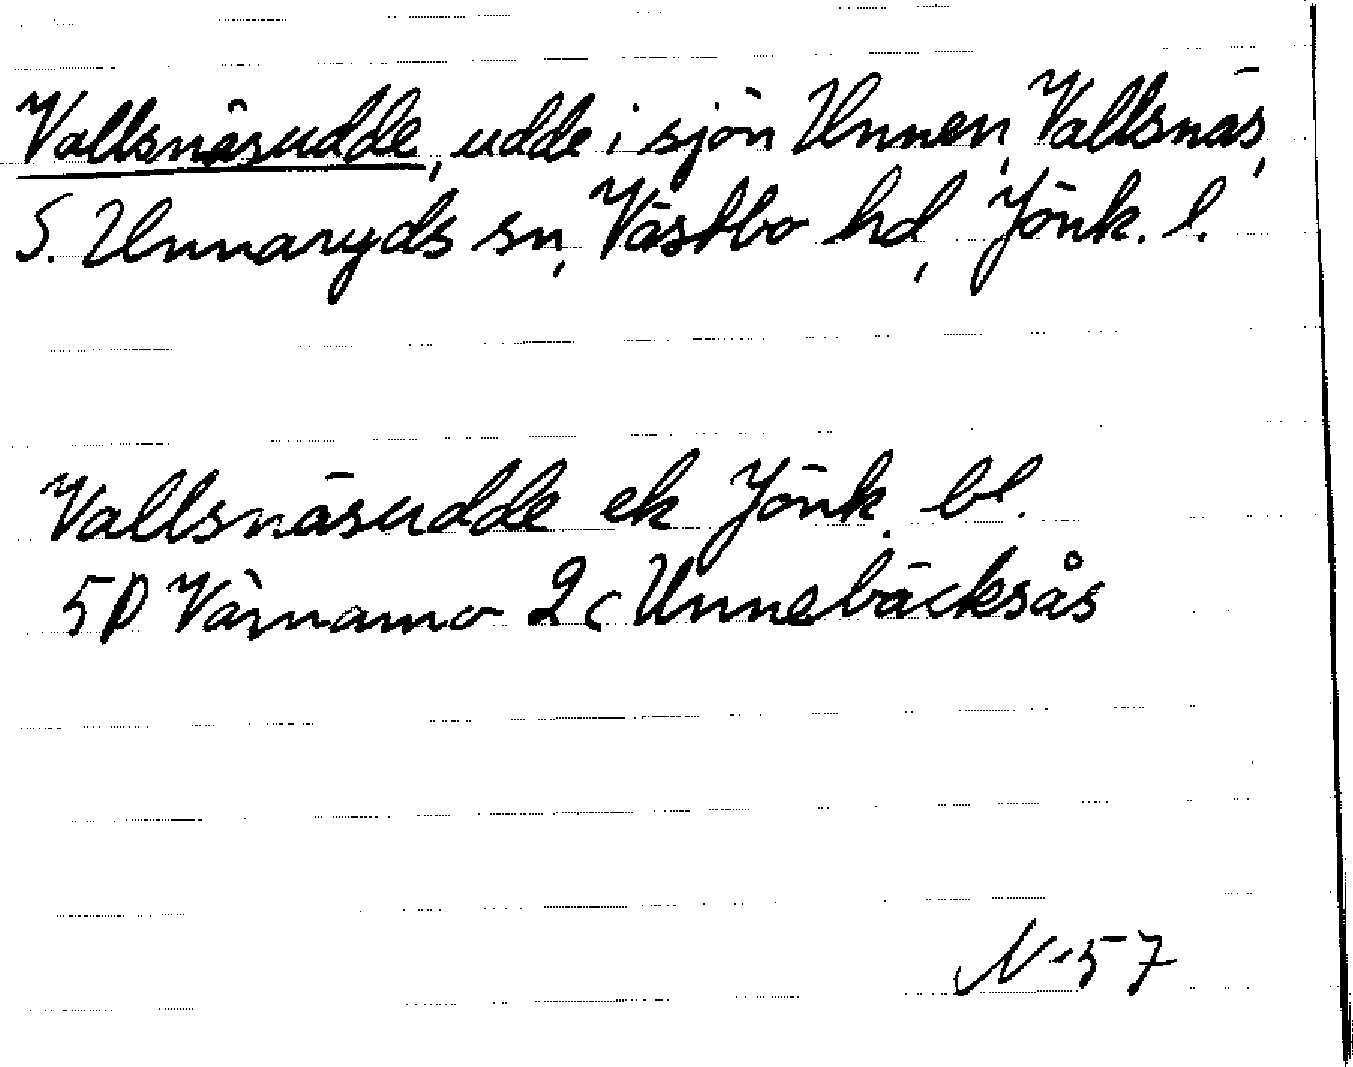 Vallsnäsudde, udde i sjön Unnen, Vallsnäs,
S. Unnaryds sn, Västbo hd, Jönk. l.
Vallsnäsudde ek Jönk. bl.
5D Värnamo 2c Unnebäcksås
N-57